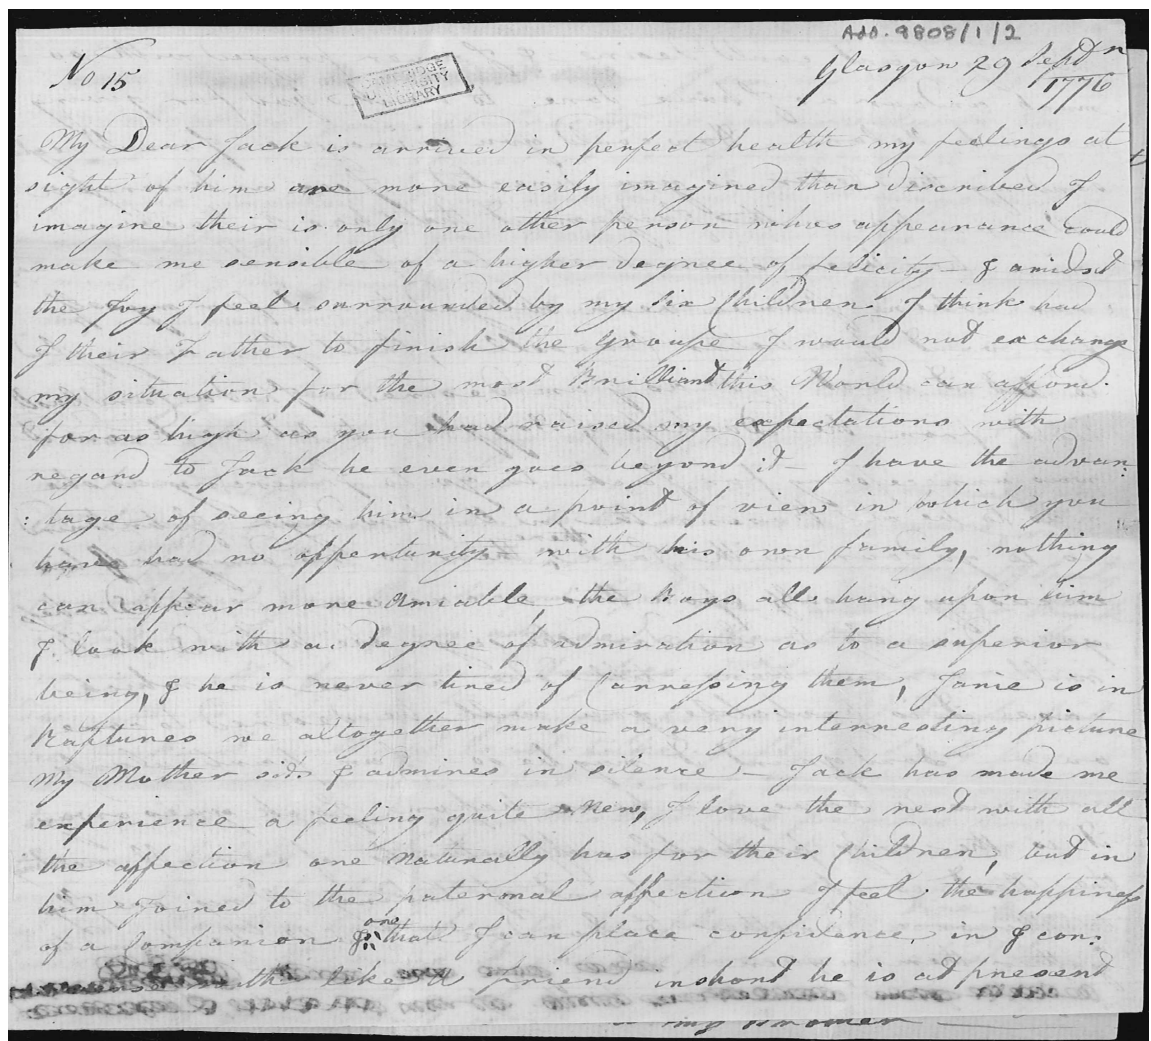 Add. 9808/1/2
No 15
CAMBRIDGE
UNIVERSITY
LIBRARY
Glasgow 29 Septr
1776
My Dear Jack is arrived in perfect health my feelings at
sight of him are more easily imagined than discribed I
imagine their is only one other person whose appearance could
make me sensible of a higher degree of felicity & amidst
the Joy I feel surrounded by my six Children I think had
I their Father to finish the Groupe I would not exchange
my situation for the most Brilliant this World can afford.
for as high as you had raised my expectations with
regard to Jack he even goes beyond it – I have the advan:
:tage of seeing him in a point of view in which you
have had no oppertunity with his own family, nothing
can appear more Amiable, the Boys all hang upon him
& look with a degree of admiration as to a superior
being, & he is never tired of Carressing them, Janie is in
Raptures we altogether make a very interresting picture
My Mother sits & admires in silence – Jack has made me
experience a feeling quite New, I love the rest with all
the affection one Naturally has for their Children, but in
him Joined to the paternal affection I feel the happiness
of a Companion & one that I can place confidence in & con:
with like a friend inshort he is at present
my Brother